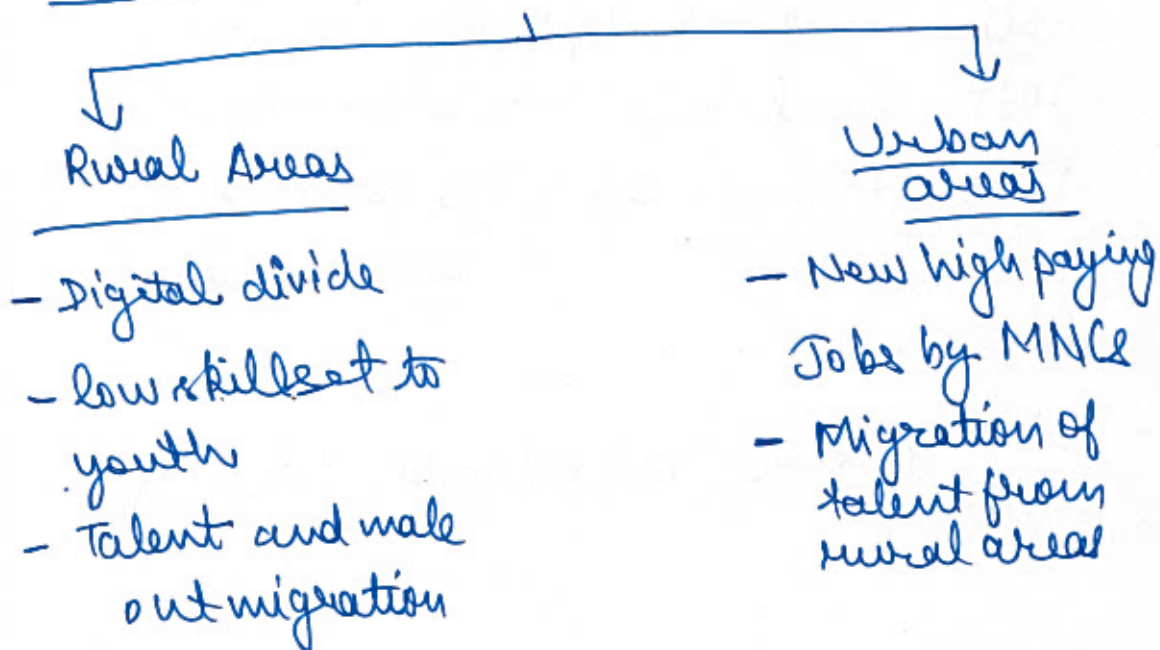 Rural Areas
- Digital divide
- low skillset to
youth
- Talent and male
outmigration
Urban
areas
- New high paying
Jobs by MNCs
- Migration of
talent from
rural areas